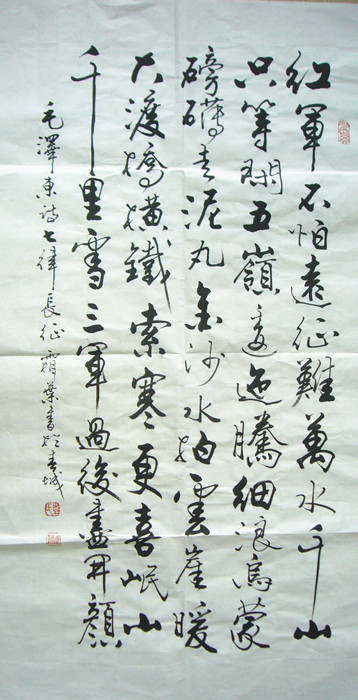 紅軍不怕遠征難萬水千山
只等閑五嶺逶迤騰細浪烏蒙
磅礴走泥丸金沙水拍雲崖暖
大渡橋橫鐵索寒更喜岷山
千里雪三軍過後盡開顏
毛澤東詩七律長征 霜葉書於春城